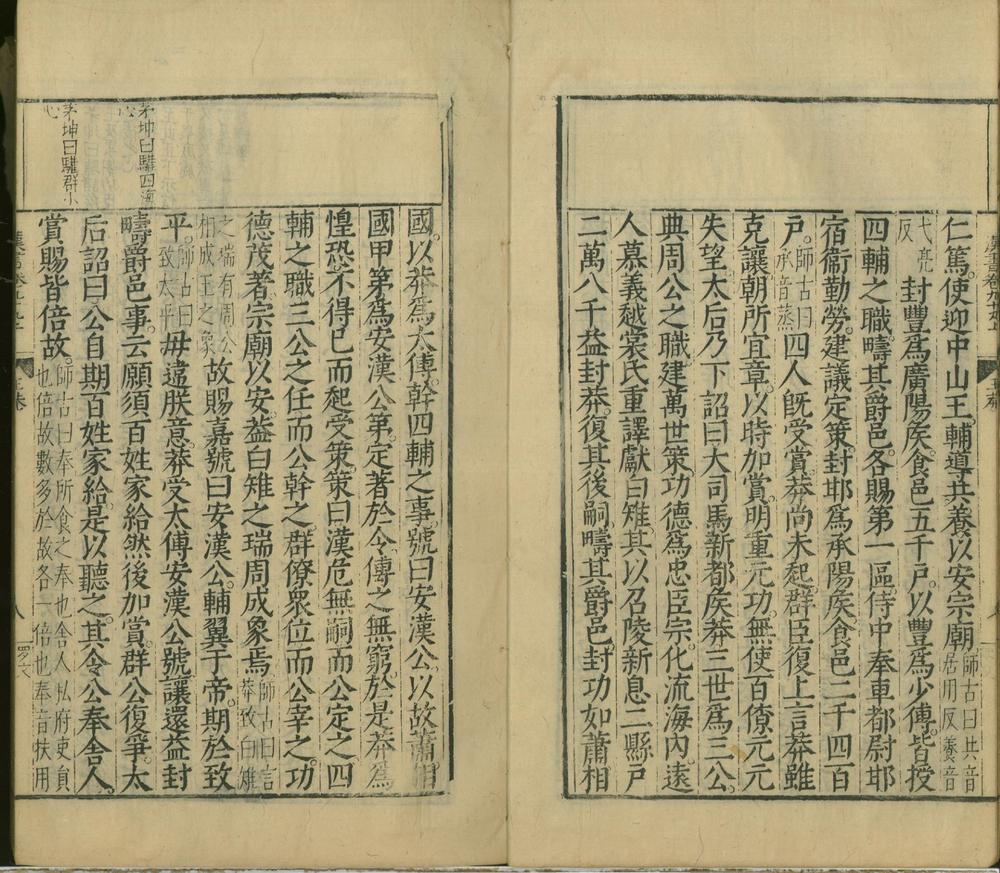 仁篤使迎中山王輔導共養以安宗廟師古曰共音居用反養音
弋亮反封豐爲廣陽矦食邑五千戶以豐爲少傅皆授
四輔之職疇其爵邑各賜第一區侍中奉車都尉邯
宿衞勤勞建議定策封邯爲承陽矦食邑二千四百
戶師古曰承音蒸四人旣受賞莽尚未起群臣復上言莽雖
克讓朝所宜章以時加賞明重元功無使百僚元元
失望太后乃下詔曰大司馬新都矦莽三世爲三公
典周公之職建萬世策功德爲忠臣宗化流海內遠
人慕義越裳氏重譯獻白雉其以召陵新息二縣戶
二萬八千益封莽復其後嗣疇其爵邑封功如蕭相
國以莽爲太傅幹四輔之事號曰安漢公以故蕭相
國甲第爲安漢公第定著於令傳之無窮於是莽爲
惶恐不得已而起受策策曰漢危無嗣而公定之四
輔之職三公之任而公幹之群僚衆位而公宰之功
德茂著宗廟以安葢白雉之瑞周成象焉師古曰言莽致白雉
之瑞有周公相成王之象故賜嘉號曰安漢公輔翼于帝期於致
平師古曰致太平毋違朕意莽受太傅安漢公號讓還益封
疇爵邑事云願須百姓家給然後加賞群公復爭太
后詔曰公自期百姓家給是以聽之其令公奉舍人
賞賜皆倍故師古曰奉所食之奉也舍人私府吏員也倍故數多於故各一倍也奉音扶用
茅坤曰驩四海心
茅坤曰驩群小心
八